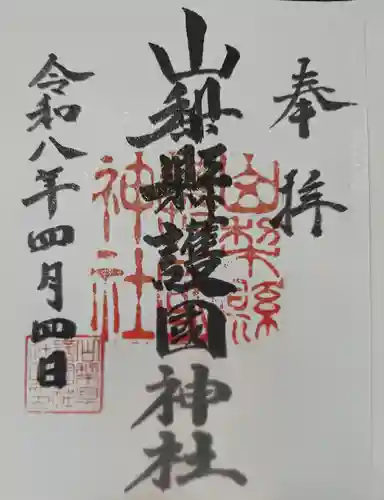 奉拝
山梨縣護國神社
令和八年四月四日
山梨縣
神社